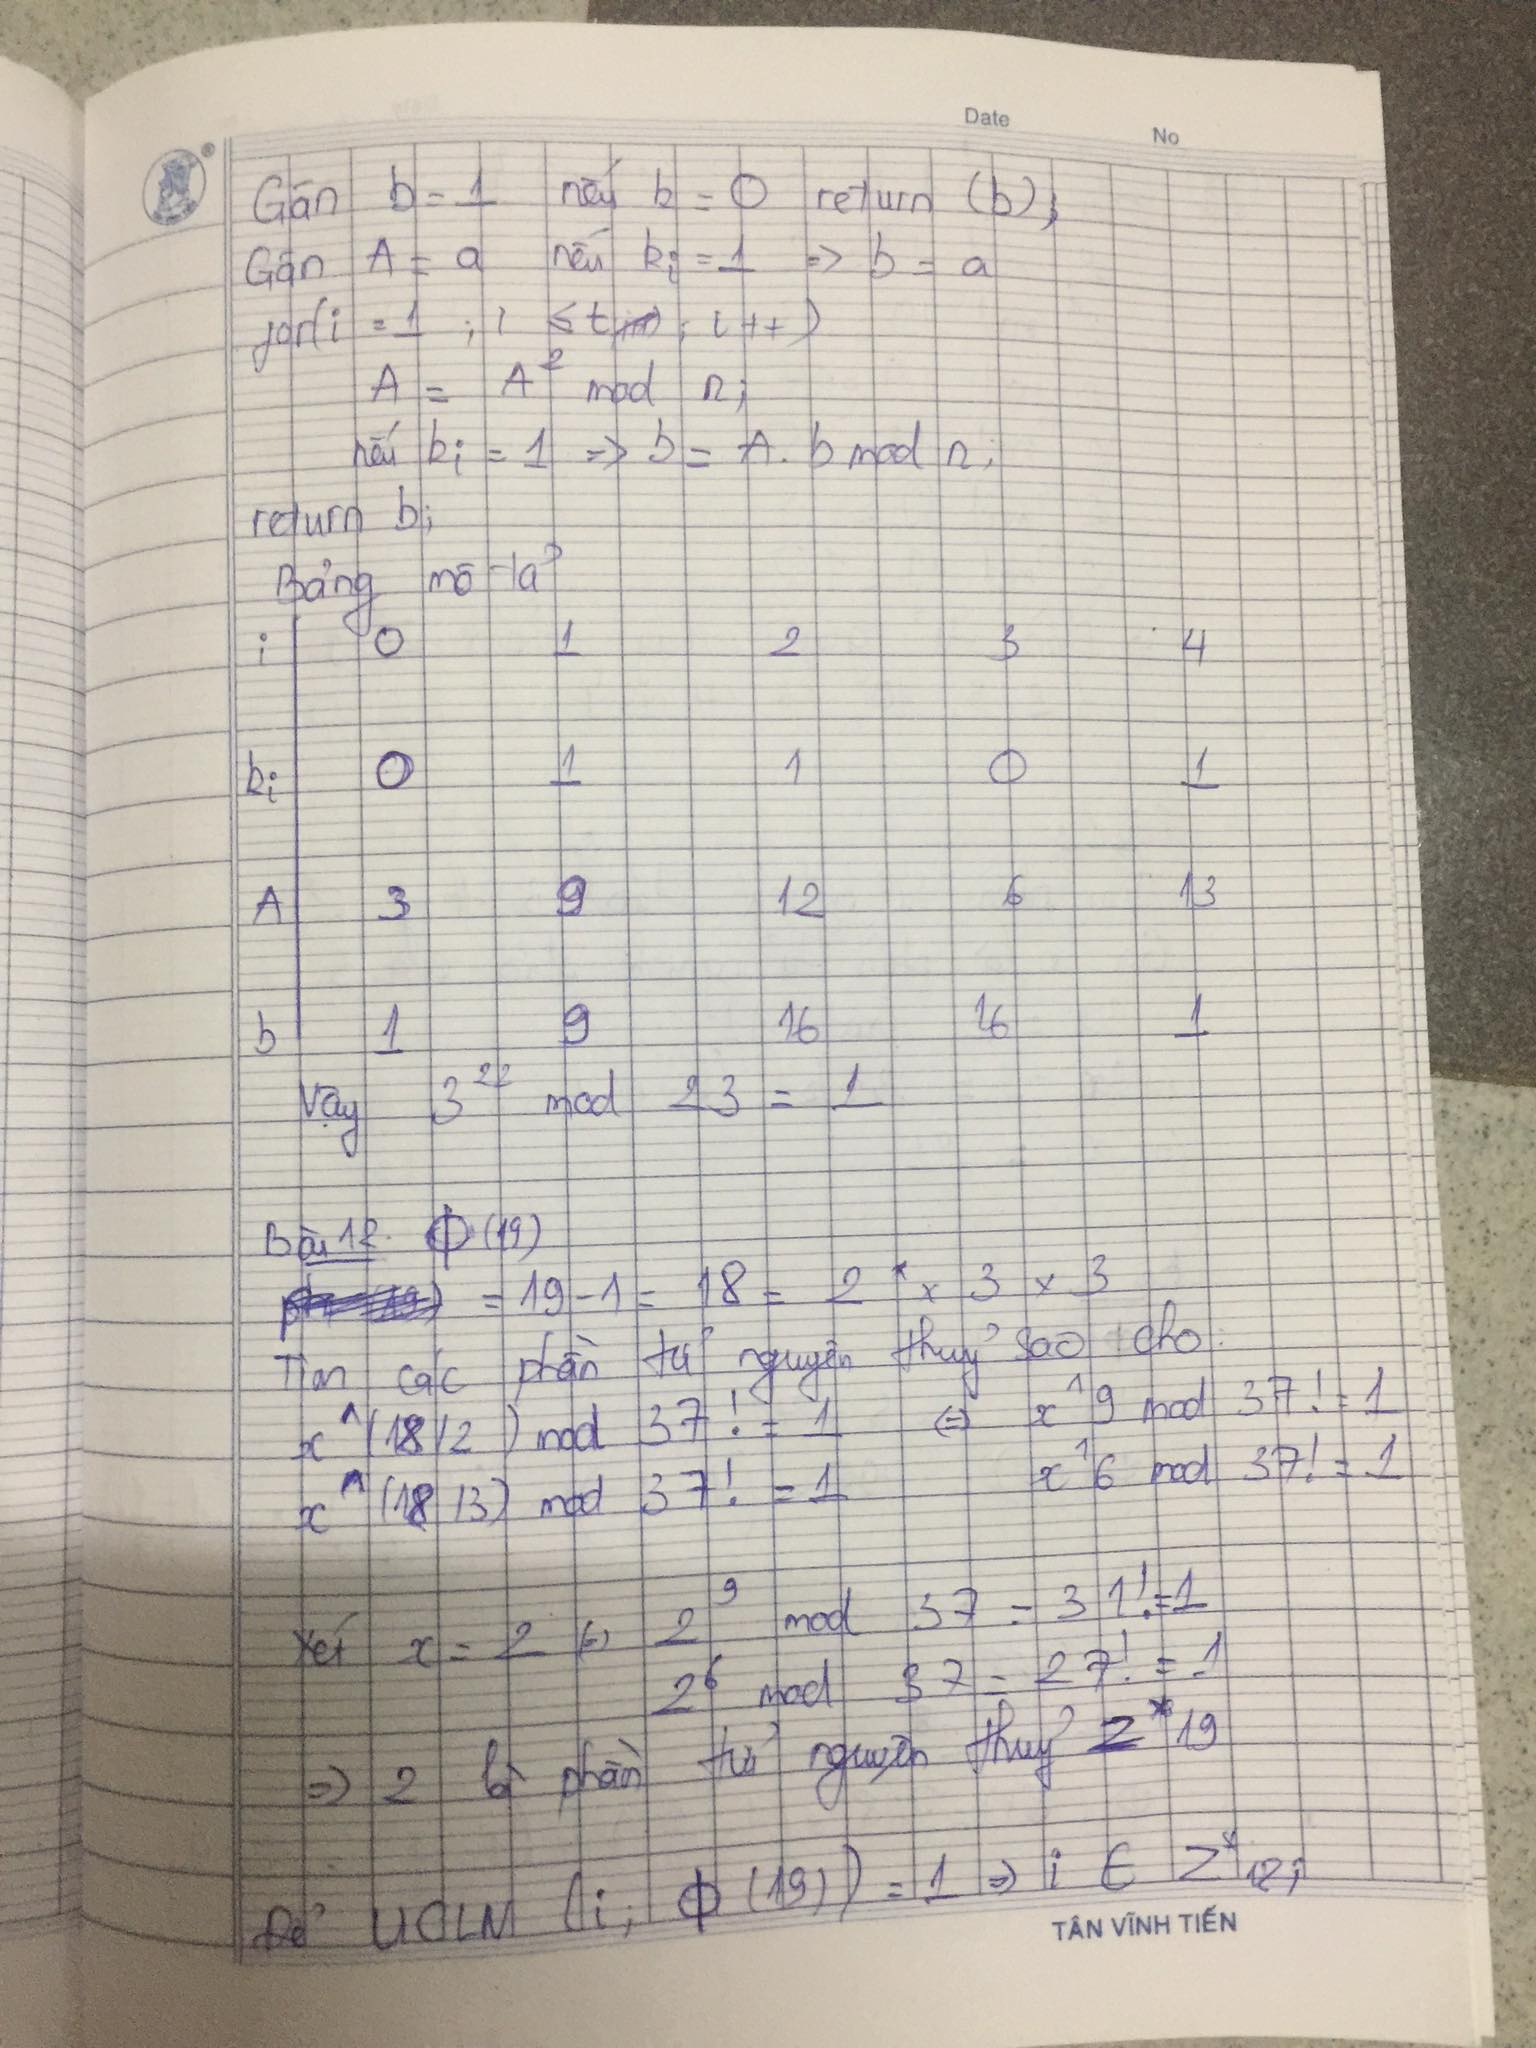 Date
No
Gán b = 1 nếu k = 0 return (b);
Gán A = a nếu ki = 1 => b = a
for(i = 1 ; i ≤ t ; i ++ )
A = A² mod n;
nếu ki = 1 => b = A. b mod n;
return b;
Bảng mô tả
i 0 1 2 3 4
ki 0 1 1 0 1
A 3 9 12 6 13
b 1 9 16 16 1
Vậy 3²² mod 23 = 1
Bài 18. Φ(19)
= 19 - 1 = 18 = 2 x 3 x 3
Tìm các phần tử nguyên thuỷ sao cho:
x^(18/2) mod 37 != 1 <=> x^9 mod 37 != 1
x^(18/3) mod 37 != 1 x^6 mod 37 != 1
Xét x = 2 <=> 2⁹ mod 37 = 31 != 1
2⁶ mod 37 = 27 != 1
=> 2 là phần tử nguyên thuỷ Z*19
Để UCLN (i; Φ(19)) = 1 => i ∈ Z*
TÂN VĨNH TIẾN